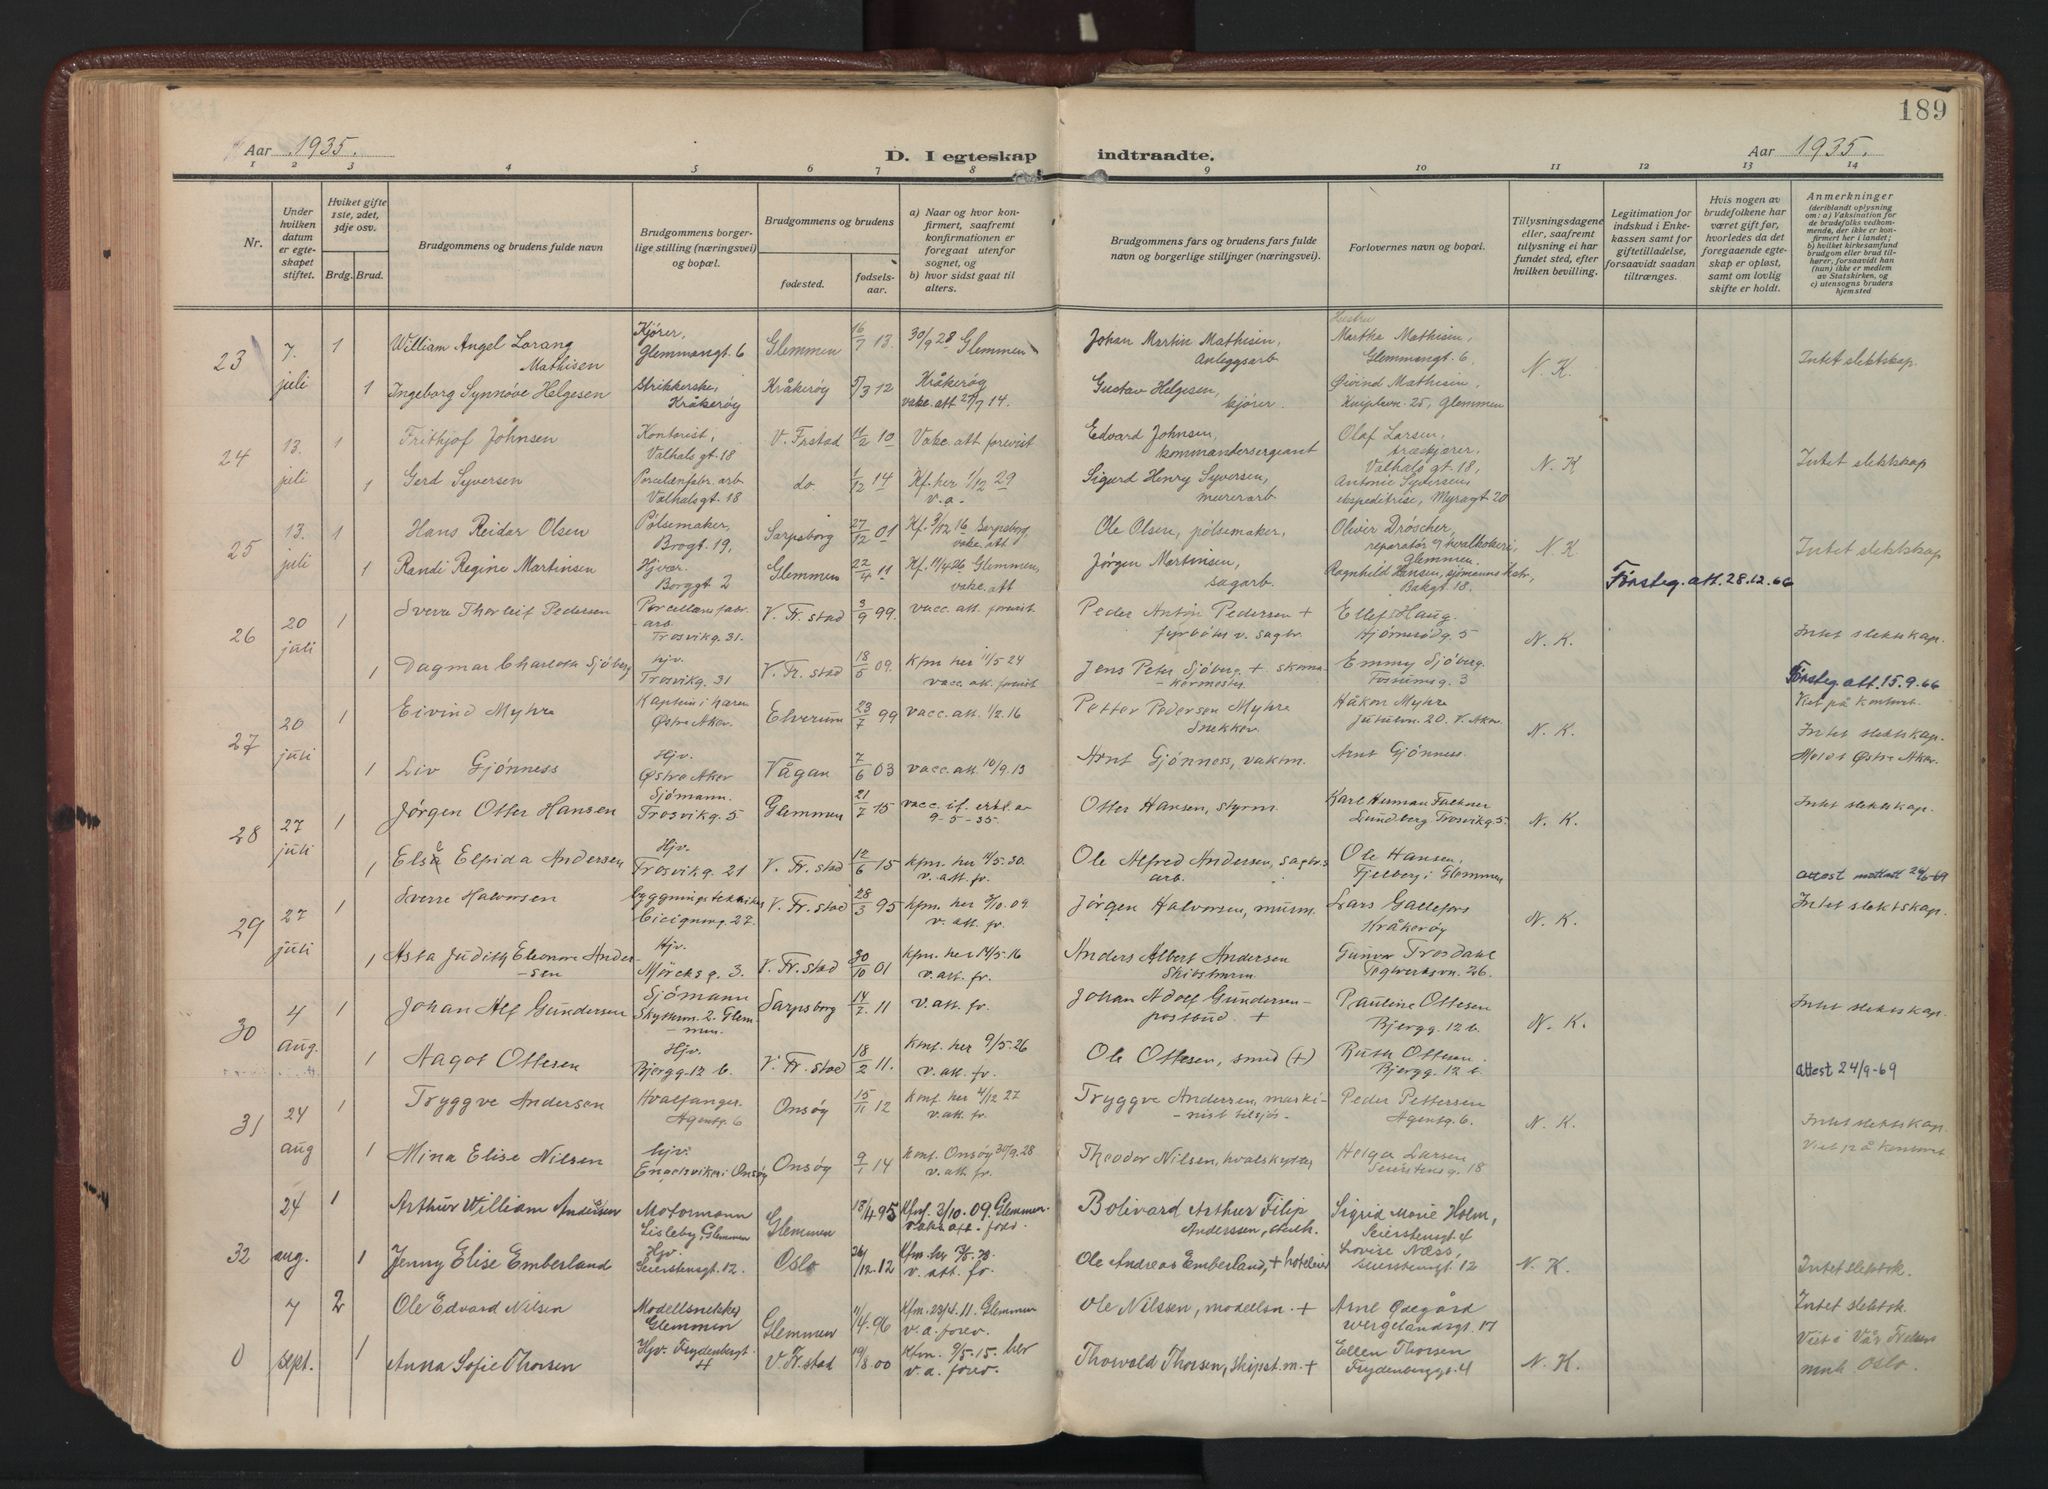 189
Aar 1935.
D. I egteskap indtraadte.
Aar 1935.
1 2 3 4 5 6 7 8 9 10 11 12 13 14
Nr.
Under hvilken datum er egteskapet stiftet.
Hvilket gifte 1ste, 2det, 3dje osv.
Brdg. Brud.
Brudgommens og brudens fulde navn
Brudgommens borgerlige stilling (næringsvei) og bopæl.
Brudgommens og brudens
fødested.
fødselsaar.
a) Naar og hvor konfirmert, saafremt konfirmationen er foregaat utenfor sognet, og
b) hvor sidst gaat til alters.
Brudgommens fars og brudens fars fulde navn og borgerlige stillinger (næringsvei).
Forlovernes navn og bopæl.
Tillysningsdagene eller, saafremt tillysning ei har fundet sted, efter hvilken bevilling.
Legitimation for indskud i Enkekassen samt for giftetilladelse, forsaavidt saadan tiltrænges.
Hvis nogen av brudefolkene har været gift før, hvorledes da det foregaaende egteskap er opløst, samt om lovlig skifte er holdt.
Anmerkninger (deriblandt oplysning om: a) Vaksination for de brudefolks vedkommende, der ikke er konfirmert her i landet; b) hvilket kirkesamfund brudgom eller brud tilhører, forsaavidt han (hun) ikke er medlem av Statskirken, og c) utensogns bruders hjemsted
23 7. juli 1 William Angel Lorang Mathisen Kjører, Glemmengt 6 Glemmen 16/7 13. 30/9 28 Glemmen Johan Martin Mathisen, Anleggsarb. Hustru Martha Mathisen, Glemmengt 6. N. K. Intet slektskap.
1 Ingeborg Synnøve Helgesen Strikkerske, Kråkerøy Kråkerøy 5/3 12 Kråkerøy vakc. att 27/7 14. Gustav Helgesen, kjører. Øivind Mathisen, 25, Glemmen
24 13. juli 1 Frithjof Johnsen Kontorist, Valhalsgt. 18 V. Frstad 11/2 10 Vakc. att forevist Edvard Johnsen, kommandersergeant Olaf Larsen, Valhalsgt 18, N. K Intet slektskap
1 Gerd Syversen Porcelænfabr. arb Valhalsgt. 18 do. 1/12 14 Kf. her 1/12 29 v. a. Sigurd Henry Syversen, murerarb. Antonie Syversen, ekspeditrise, Myragt 20
25 13. juli 1 Hans Reidar Olsen Pølsemaker, Brogt. 19, Sarpsborg 27/12 01 Kf. 3/12 16 Sarpsborg, vakc. att Ole Olsen, pølsemaker, Oliver Dröscher, reparatør Glemmen N. K Intet slektskap
1 Randi Regine Martinsen Hjvær. Borggt 2 Glemmen 22/4 11 Kf. 11/4 26 Glemmen, vakc. att Jørgen Martinsen, sagarb. Ragnhild Hansen, Bakgt. 18. Førsteg. att. 28.12.66
26 20 juli 1 Sverre Thorleif Pedersen Porcellænsfabr. arb. Trosvikg. 31. V. Fr. stad 3/9 99. vacc. att. forevist. Peder Anton Pedersen + fyrbøter v. sagbr. Ellef Haug. 5 N. K. Intet slektskap.
1 Dagmar Charlotta Sjöberg hjv. Trosvikg. 31 V. Fr. stad 18/5 09. Kfm her 11/5 24 vacc. att. forevist Jens Peter Sjöberg + Emmy Sjöberg. Fossumsg. 3 Førsteg. att. 15.9.66
27 20 juli 1 Eivind Myhre Kaptein i hæren Østre Aker. Elverum 23/7 99 vacc. att. 1/2.16 Petter Pedersen Myhre Snekker Håkon Myhre 20. V. Aker. N. K. Viet på kontoret. Intet slektskap.
1 Liv Gjönness Hjv. Østre Aker Vågan 7/6 03 vacc. att. 10/9.13 Arnt Gjönness, vaktm. Arnt Gjönness. Meldt Østre Aker.
28 27 juli 1 Jörgen Otter Hansen Sjömann. Trosvikg. 5 Glemmen 21/7 15 vacc. if. erkl. av 9-5-35. Otter Hansen, styrm. Karl Herman Lundberg Trosvikg. 5. N. K. Intet slektskap.
1 Elsa Elfida Andersen Hjv. Trosvikg. 21 V. Fr. stad 12/6 15 kfm. her 11/5.30. v. att. fr. Ole Alfred Andersen, sagbr. arb. Ole Hansen, Fjelberg i Glemmen attest mottatt 24/6-69
29 27 juli 1 Sverre Halvorsen bygningstekniker Cicignong. 27. V. Fr. stad 28/3 95 kfm. her 3/10.09. v. att. fr. Jörgen Halvorsen, murm. Lars Gallefors Kråkerøy N. K. Intet slektskap.
1 Asta Judith Eleonore Andersen Hjv. Mörcks g. 3. V. Fr. stad 30/10 01 kfm. her 14/5.16 v. att. fr. Anders Albert Andersen Skibstømm. Gunvor Trosdahl Teglverksvn. 26.
30 4 aug. 1 Johan Alf Gundersen Sjömann Glemmen. Sarpsborg 14/7. 11 v. att. fr. Johan Adolf Gundersen postbud. + Pauline Ottesen Bjergg. 12 b. N. K. Intet slektskap.
1 Aagot Ottesen Hjv. Bjergg. 12 b. V. Fr. stad 18/2 11. Konf. her 9/5.26 v. att. fr. Ole Ottesen, smed (+) Ruth Ottesen. Bjergg. 12 b. attest 24/9-69
31 24 aug 1 Tryggve Andersen Hvalfanger. Agentg. 6 Onsøy 15/11 12 Konf. her 4/12 27 v. att. fr. Tryggve Andersen, maskinist tilsjøs. Peder Pettersen Agentg. 6. N. K. Intet slektskap.
1 Mina Elise Nilsen hjv. Engelsviken i Onsøy Onsøy 9/1 14 konf. Onsøy 30/9.28 v. att. fr. Theodor Nilsen, hvalskytter Helga Larsen Seierstensg. 18 Viet på kontoret
32 24 aug. 1 Arthur William Anderssen Motormann Lisleby, Glemmen Glemmen 18/4 95 Kfm. 3/10.09. Glemmen. v. att. forev. Bolivard Arthur Filip Anderssen, Sigrid Marie Holm, Seierstensgt 4
1 Jenny Elise Emberland Hjv. Seierstensgt. 12. Oslo 26/12.12 Kfm. her v. att. fr. Ole Andreas Emberland, + hoteleier Lovise Næss, Seierstensgt. 12 N. K. Intet slektsk.
0 7 sept. 2 Ole Edvard Nilsen Modellsnekker Glemmen Glemmen 11/4.96 Kfm. 23/4.11. Glemmen v. a. forev. Ole Nilssen, modellsn. + Arne Ødegård Wergelandsgt. 17 Intet slektsk.
1 Anna Sofie Thorsen Hjv. Frydenbergt. 4 V. Fr. stad 19/8.00 Kfm. 9/5.15. her v. a. forev. Thorvald Thorsen, skipst. m. + Ellen Thorsen Frydenberggt. 4 N. K. Viet i Vår Frelsers Oslo.